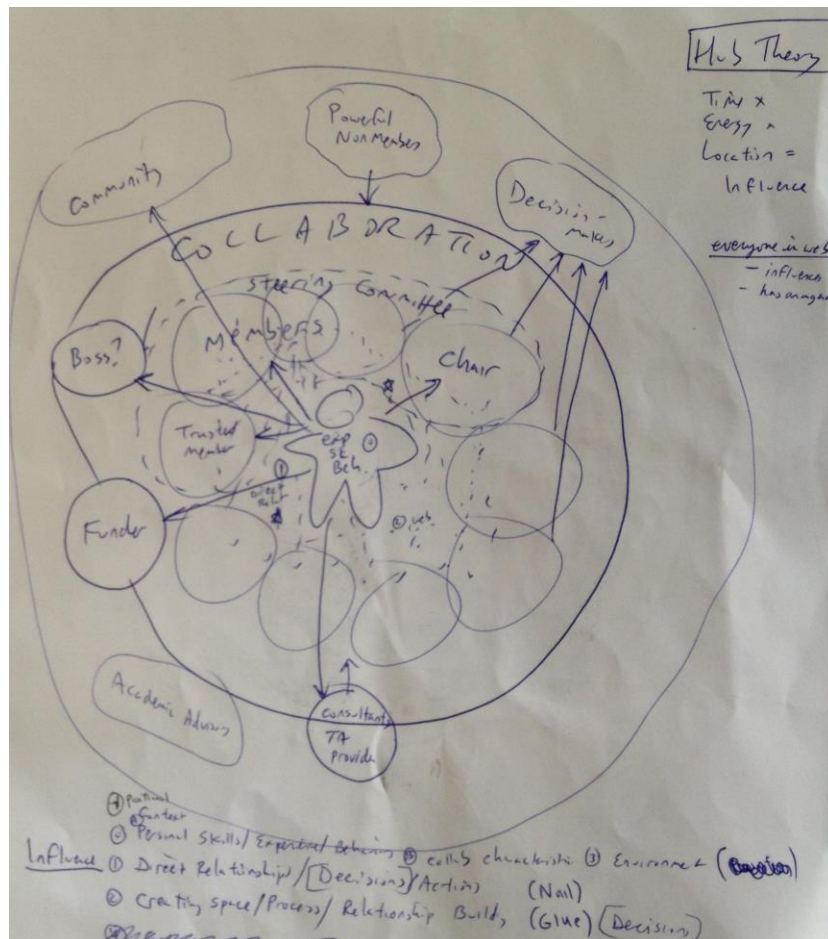 Hub Theory
Time x
Energy x
Location =
Influence
everyone in web
- influences
Powerful
NonMembers
Community
Decision-
makers
COLLABORATION
Steering Committee
Members
Boss?
Chair
Trusted
member
exp
SK
Beh.
① Direct
Relat
② web
Funder
Academic Advisors
consultant
TA
Provide
Context
⓪ Personal Skills/Experience/Behaviors collab characteristic ③ Environment
Influence ① Direct Relationships/[Decisions]/Actions (Nail)
② Creating space/Process/Relationship Builds (Glue) [Decision]